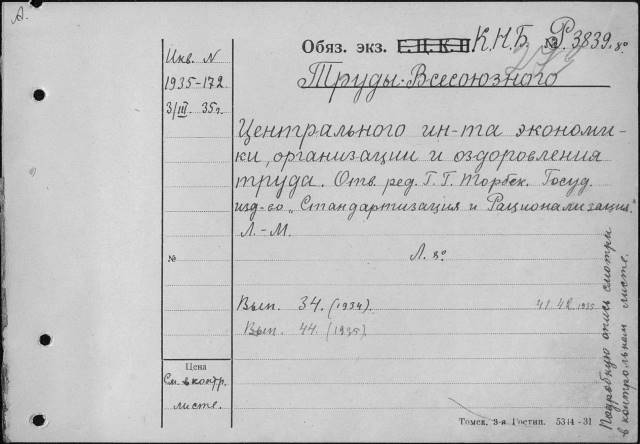 А.
Обяз. экз. Г.Ц.К.П К.Н.Б. № Р. 3839. 8°
Инв. N
1935-172
3/III. 35 г.
Труды Всесоюзного
Центрального ин-та экономи-
ки, организации и оздоровления
труда. Отв. ред. Г. Г. Торбек. Госуд.
изд-во „Стандартизация и Рационализация.“
Л.-М.
№
Л. 8°
Вып. 34. (1934). 41. 42. 1935
Вып. 44. (1935).
Цена
См. в контр.
листе.
Подробную опись смотри
в контрольном листе.
Томск. 3-я Гостип. 5314-31